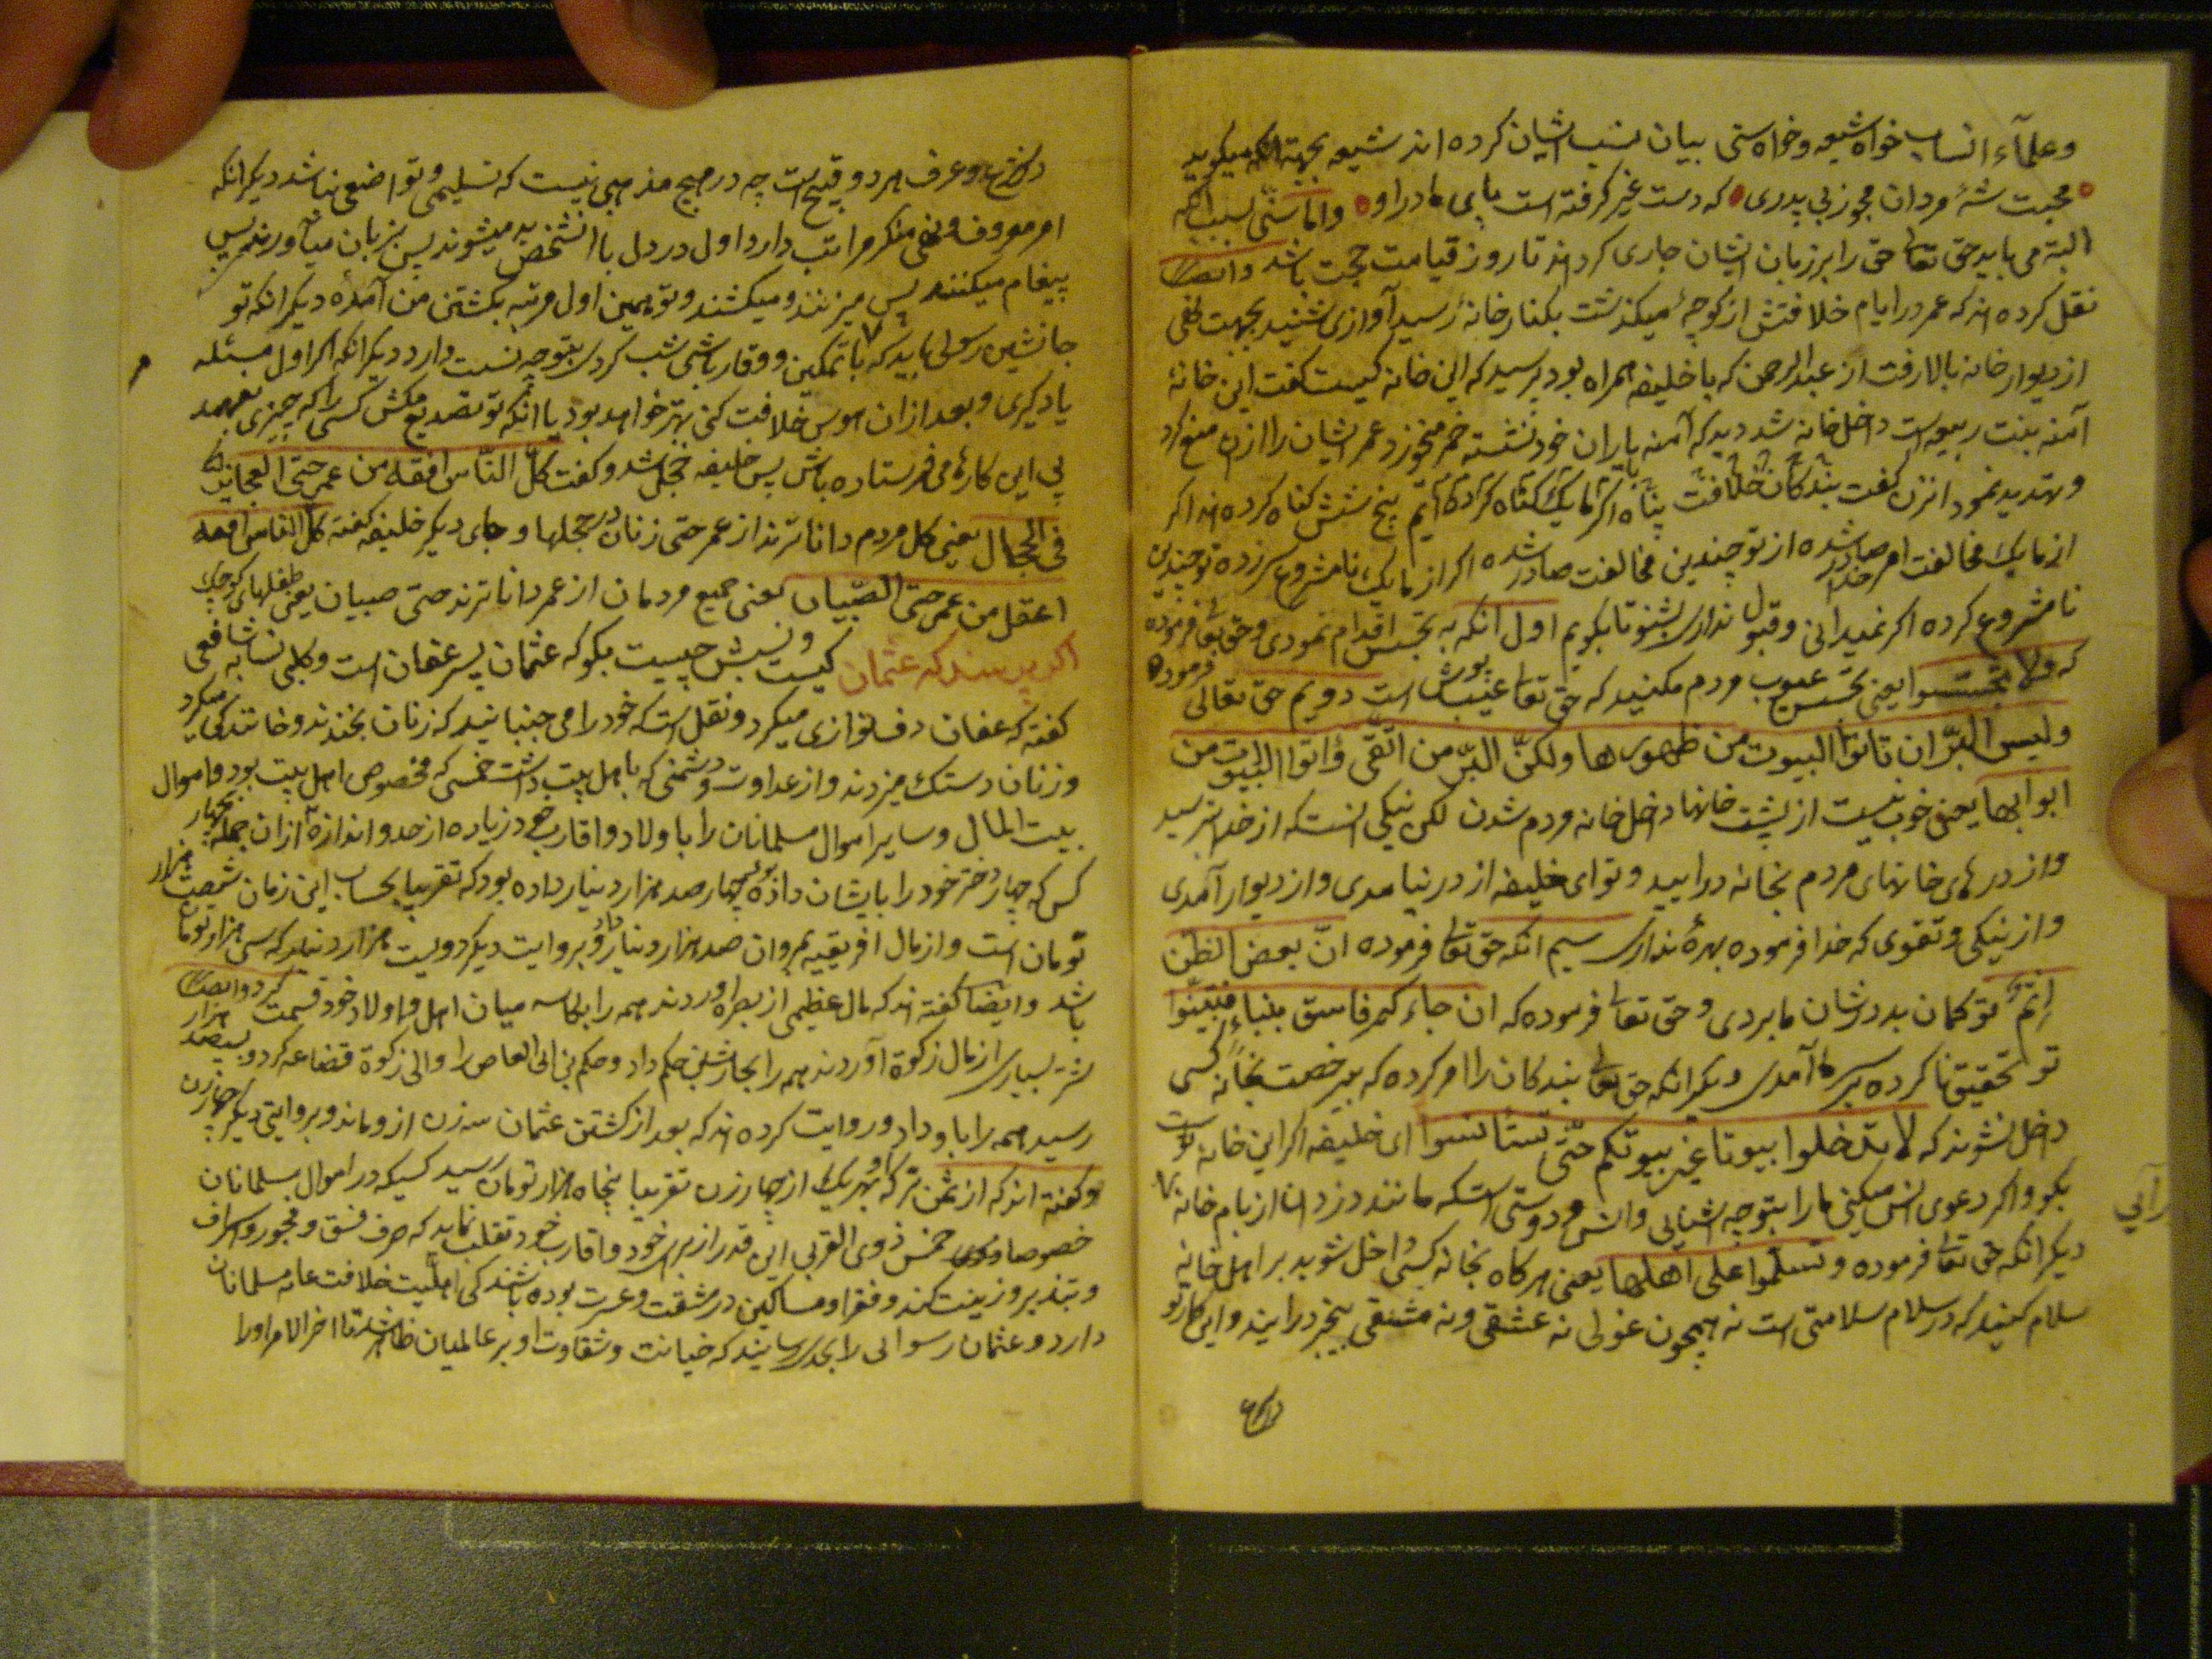 وعلمآء انساب خواه شیعه وخواه سنی بیان نسب ایشان کرده اند شیعه بجهة انکه میکوید
محبت شۀ مردان مجوز بی پدری که دست غیر کرفته است پای مادر او واما سنی بسبب انکه
البته می باید حق تعا حق را بر زبان ایشان جاری کرداند تا روز قیامت حجت باشد وایضا
نقل کرده اند که عمر در ایام خلافتش از کوچۀ میکذشت بکنار خانۀ رسید آوازی شنید بجهت
از دیوار خانه بالا رفت از عبدالرحمن که با خلیفه همراه بود پرسید که این خانه کیست کفت این خانۀ
آمنه بنت ربیعه است داخل خانه شد دید که آمنه با یاران خود نشسته خمر میخورد عمر ایشان را ازان منع کرد
وتهدید نمود انزن کفت بندکان خلافت پناه اکر ما یک کناه کرده ایم پنج شش کناه کرده اند اکر
از ما یک مخالفت امر خدا صادر شده از تو چندین مخالفت صادر شده اکر از ما یک نامشروع سرزده تو چندین
نامشروع کرده اکر نمیدانی وقبول نداری بشنو تا بکویم اول انکه به تجسس اقدام نمودی وحق تعا فرموده
که ولا تجسسوا یعنی تجسس عیوب مردم مکنید که حق تعا عیب پوش است دویم حق تعالی فرموده
ولیس البرّ ان تاتوا البیوت من ظهورها ولکنّ البرّ من اتّقی وأتوا البیوت من
ابوابها یعنی خوب نیست از پشت خانها داخل خانه مردم شدن لکن نیکی انست که از خدا بترسید
واز درهای خانهای مردم بخانه درایید وتو ای خلیفه از در نیامدی واز دیوار آمدی
واز نیکی وتقوی که خدا فرموده بهرۀ نداری سیم انکه حق تعا فرموده انّ بعض الظن
إثم تو کمان بد درشان ما بردی وحق تعا فرموده که ان جاءکم فاسق بنباء فتبیّنوا
تو تحقیق ناکرده بر سر ما آمدی دیکر انکه حق تعا بندکان را امر کرده که بیرخصت بخانۀ کسی
داخل نشوند که لا تدخلوا بیوتا غیر بیوتکم حتّی تستانسوا ای خلیفه اکر این خانه تست
بکو واکر دعوی انس میکنی ما را بتو چه اشنایی وانس ودوستی است که مانند دزدان از بام خانه ما
دیکر انکه حق تعا فرموده وتسلّموا علی اهلها یعنی هرکاه بخانه کسی داخل شوید بر اهل خانه
سلام کنید که در سلام سلامتی است نه همچون غولی نه عشقی ونه مشتقی بیخبر درایند واین کار تو
رآیی
در شرع وعرف هر دو قبیح است چه در هیچ مذهبی نیست که تسلیمی وتواضعی نباشد دیکر انکه
امر معروف ونهی منکر مراتب دارد اول در دل با انشخص بد میشوند پس بزبان میآورند پس
پیغام میکنند پس میزنند ومیکشند وتو همین اول مرتبه بکشتن من آمدۀ دیکر انکه تو
جانشین رسولی باید که با تمکین ووقار باشی شب کردی بتو چه نسبت دارد دیکر انکه اکر اول مسئله
یاد کیری وبعد ازان هوس خلافت کنی بهتر خواهد بود یا انکه تو تصدیع مکش کسی را که چیزی بفهمد
پی این کارها می فرستاده باش پس خلیفه خجل شد وکفت کلّ النّاس افقه من عمر حتّی العجایز
فی الحجال یعنی کل مردم داناترند از عمر حتی زنان در حجلها وجای دیکر خلیفه کفته کلّ الناس افقه
اعقل من عمر حتی الصّبیان یعنی جمیع مردمان از عمر داناترند حتی صبیان یعنی طفلهای کوچک
اکر پرسند که عثمان کیست ونسبش چیست بکو که عثمان پسر عفان است وکلبی نسابه شافعی
کفته که عفان دف نوازی میکرد ونقل است که خود را می جنبانید که زنان بخندند وخانندکی میکرد
وزنان دستک میزدند واز عداوت ودشمنی که با اهل بیت داشت خمسی که مخصوص اهل بیت بود واموال
بیت المال وسایر اموال مسلمانان را باولاد واقارب خود زیاده از حد واندازه از ان جمله بچهار
کس که چهار دختر خود را بایشان داده بود چهار صد هزار دینار داده بود که تقریبا بحساب این زمان شصت هزار
تومان است واز مال افریقیه بمروان صد هزار دینار داد وبروایت دیکر دویست هزار دینار که سی هزار تومان
باشد وایضا کفته اند که مال عظیمی از بصره اوردند همه را بکاسه میان اهل واولاد خود قسمت کرد وایضا
شتر بسیاری از مال زکوة آوردند همه را بحارث بن حکم داد وحکم بن ابی العاص را والی زکوة قضاعه کرد وسیصد هزار
رسید همه را باو داد وروایت کرده اند که بعد از کشتن عثمان سه زن ازو ماند وبروایتی دیکر چهار زن
وکفته اند که از ثمن ترکه او بهر یک از چهار زن تقریبا پنجاه هزار تومان رسید کسیکه در اموال مسلمانان
خصوصا خمس ذوی القربی این قدر از برای خود واقارب خود تقلب نماید که صرف فسق وفجور واسراف
وتبذیر وزینت کند وفقرا ومساکین در مشقت وعسرت بوده باشند کی اهلیت خلافت عامه مسلمانان
دارد وعثمان رسوایی را بحدی رسانید که خیانت وشقاوت او بر عالمیان ظاهر شد تا اخر الامر اورا